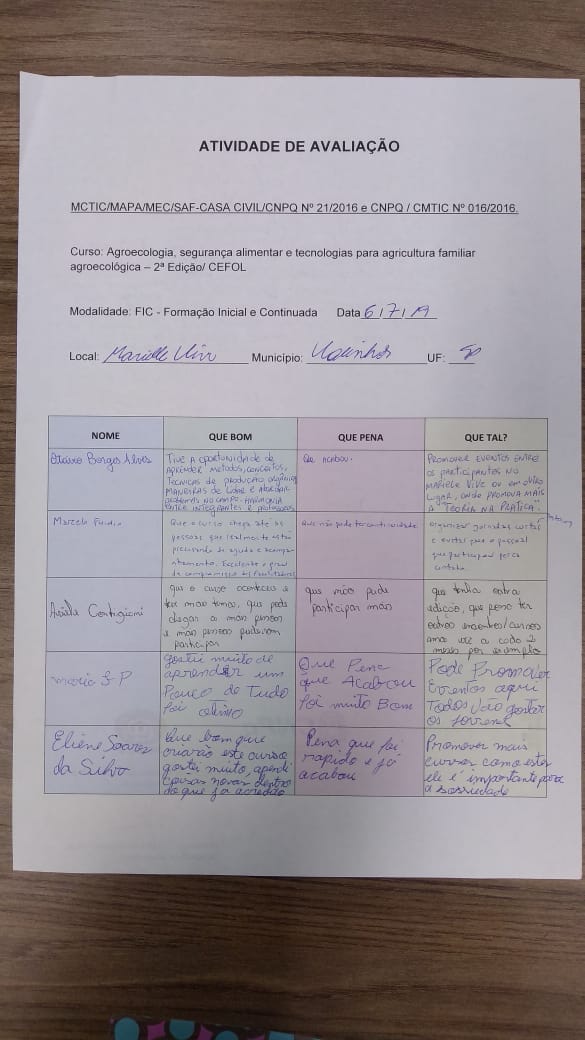 ATIVIDADE DE AVALIAÇÃO
MCTIC/MAPA/MEC/SAF-CASA CIVIL/CNPQ Nº 21/2016 e CNPQ / CMTIC Nº 016/2016.
Curso: Agroecologia, segurança alimentar e tecnologias para agricultura familiar
agroecológica – 2ª Edição/ CEFOL
Modalidade: FIC - Formação Inicial e Continuada Data 6/7/19
Local: Marielle Vive Município: UF: SP
NOME QUE BOM QUE PENA QUE TAL?
Borges Alves
TIVE A OPORTUNIDADE DE
APRENDER METODOS, CONCEITOS,
TECNICAS DE PRODUÇÃO ORGÂNICA
MANEIRAS DE LIDAR E ABORDAR
PROBLEMAS NO CAMPO. HARMONIA
ENTRE INTEGRANTES E professores
Que acabou.
PROMOVER EVENTOS ENTRE
OS PARTICIPANTES NO
MARIELE VIVE OU EM OUTRO
LUGAR, ONDE PROMOVA MAIS
A "TEORIA NA PRÁTICA".
Marcelo
Que o curso chega até as
pessoas que realmente estão
precisando de ajuda e acompa-
nhamento. Excelente o grau
de compromisso
Que não pode ter continuidade
organizar
e
que participou
contato
que o curso aconteceu e
teve mais temas, que pode
chegar a mais pessoas
e mais pessoas puderam
participar
que não pude
participar mais
que tenha outra
edição, que possa ter
outros encontros/cursos
uma vez a cada 2
meses por exemplo
maria S P
gostei muito de
aprender um
Pouco de Tudo
foi otimo
Que Pena
que Acabou
foi muito Bom
Pode Promover
Eventos aqui
Todos vão gostar
Eliene Soares
da Silva
Que bom que
criarão este curso
gostei muito, aprendi
coisas novas dentro
do que ja
Pena que foi
rapido e já
acabou
Promover mais
cursos como estes
ele é importante para
a